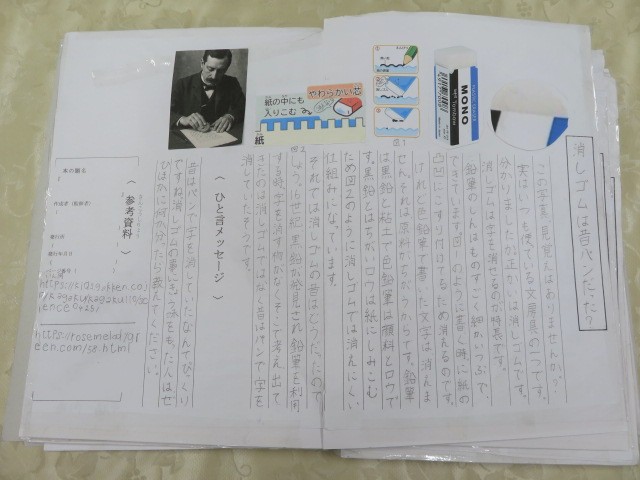 消しゴムは昔パンだった？
この写真見覚えはありませんか？
実はいつも使っている文房具の一つです。
分かりましたか？正かいは消しゴムです。
消しゴムは字を消せるのが特長です。
鉛筆のしんはものすごく細かいつぶで、
できています。図1のように書く時に紙の
凸凹にこすり付けてるため消えるのです。
けれど色鉛筆で書いた文字は消えま
せん。それは原料がちがうからです。鉛筆
は黒鉛と粘土で色鉛筆は顔料とロウで
す。黒鉛とはちがいロウは紙にしみこむ
ため図2のように消しゴムでは消えにくい
仕組みになっています。
それでは消しゴムの昔はどうだったので
黒鉛が発見され鉛筆を利用
する時字を消す物がなくそこで考え出て
きたのは消しゴムではなく昔はパンで字を
消していたそうです。
〈 ひと言メッセージ 〉
昔はパンで字を消していたなんてびっくり
ですね。消しゴムの事にきょう味をもった人はぜ
ひほかに何か使ったら教えてください。
〈 参考資料 〉
本の題名
作成者（監修者）
発行所
発行年月日
https://rosemelodygr
een.com/38.html
紙の中にも
入りこむ
やわらかい芯
紙
図1
図2
MONO
Tombow